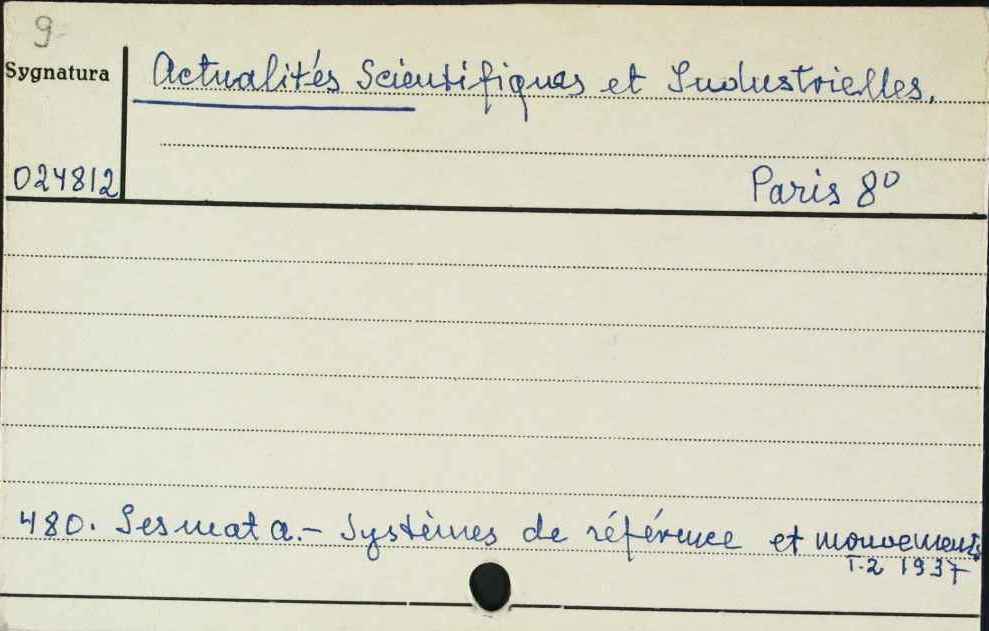 9
Sygnatura
Actualités Scientifiques et Industrielles.
024812
Paris 8°
480. Sesmat A. - Systèmes de référence et mouvements
T.2 1937